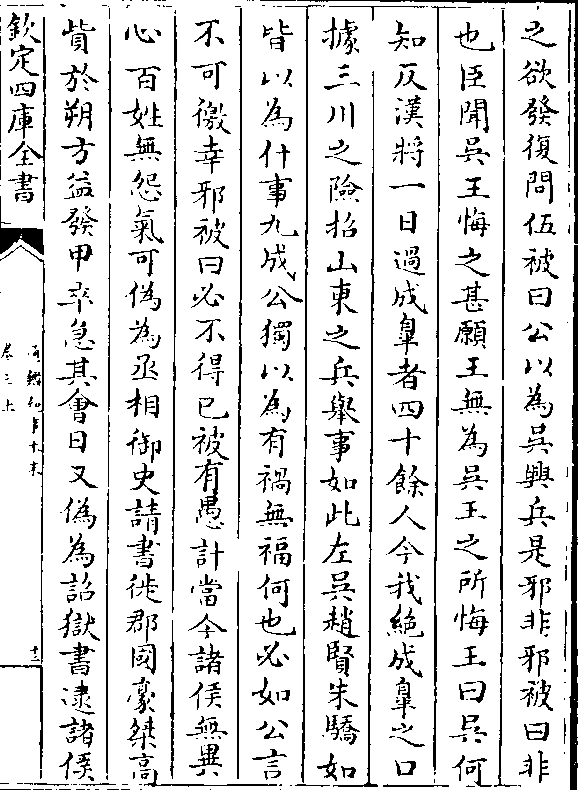 之欲發復問伍被曰公以為吳興兵是邪非邪被曰非
也臣聞吳王悔之甚願王無為吳王之所悔王曰吳何
知反漢將一日過成臯者四十餘人今我絶成臯之口
據三川之險招山東之兵舉事如此左吳趙賢朱驕如
皆以為什事九成公獨以為有禍無福何也必如公言
不可徼幸邪被曰必不得已被有愚計當今諸侯無異
心百姓無怨氣可偽為丞相御史請書徙郡國豪桀高
貲於朔方益發甲卒急其會日又偽為詔獄書逮諸侯
欽定四庫全書
卷三上
十三